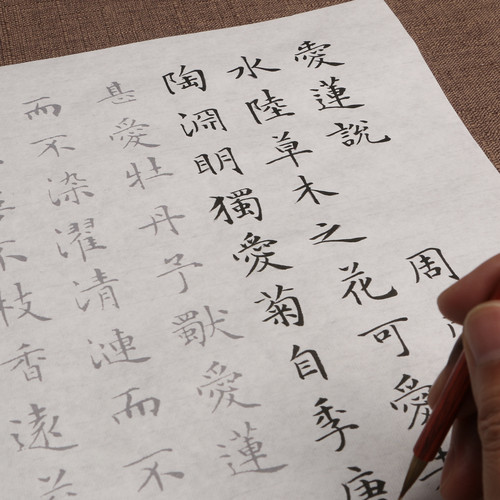 愛蓮說周
水陸草木之花可愛
陶淵明獨愛菊自季唐
甚愛牡丹予獨愛蓮
而不染濯清漣而不
不枝香遠